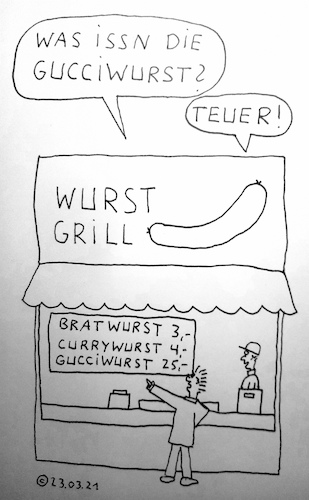 WAS iSSN DiE
GUCCiWURST?
TEUER!
WURST
GRiLL
BRATWURST 3,-
CURRYWURST 4,-
GUCCiWURST 25,-
©23.03.21